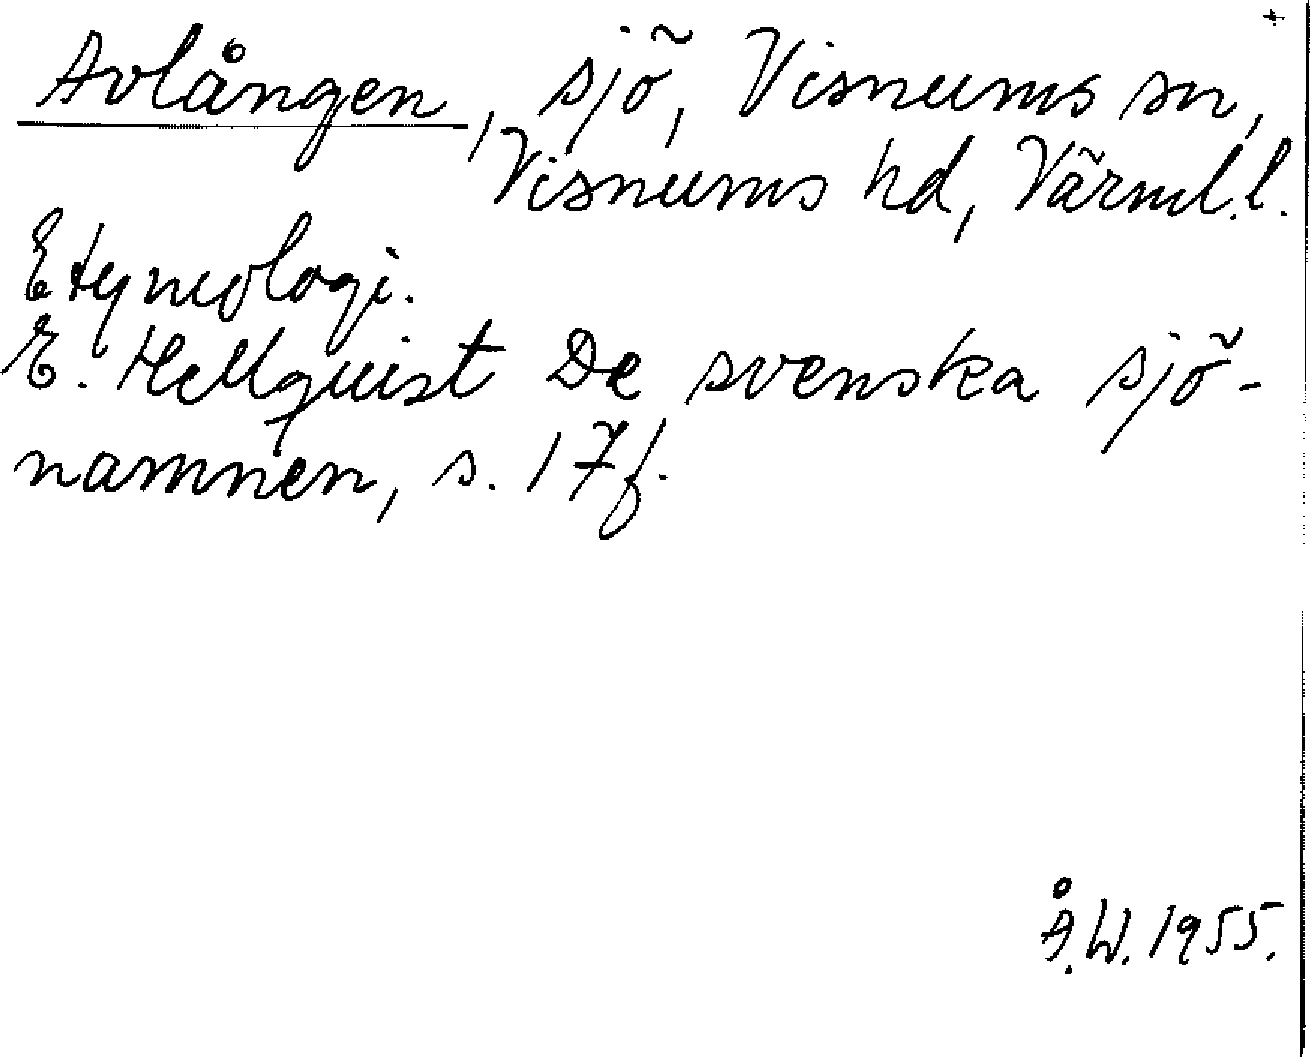 Avlången, sjö, Visnums sn,
Visnums hd, Värml.l.
Etymologi.
E. Hellquist De svenska sjö-
namnen, s. 17f.
Å.W. 1955.